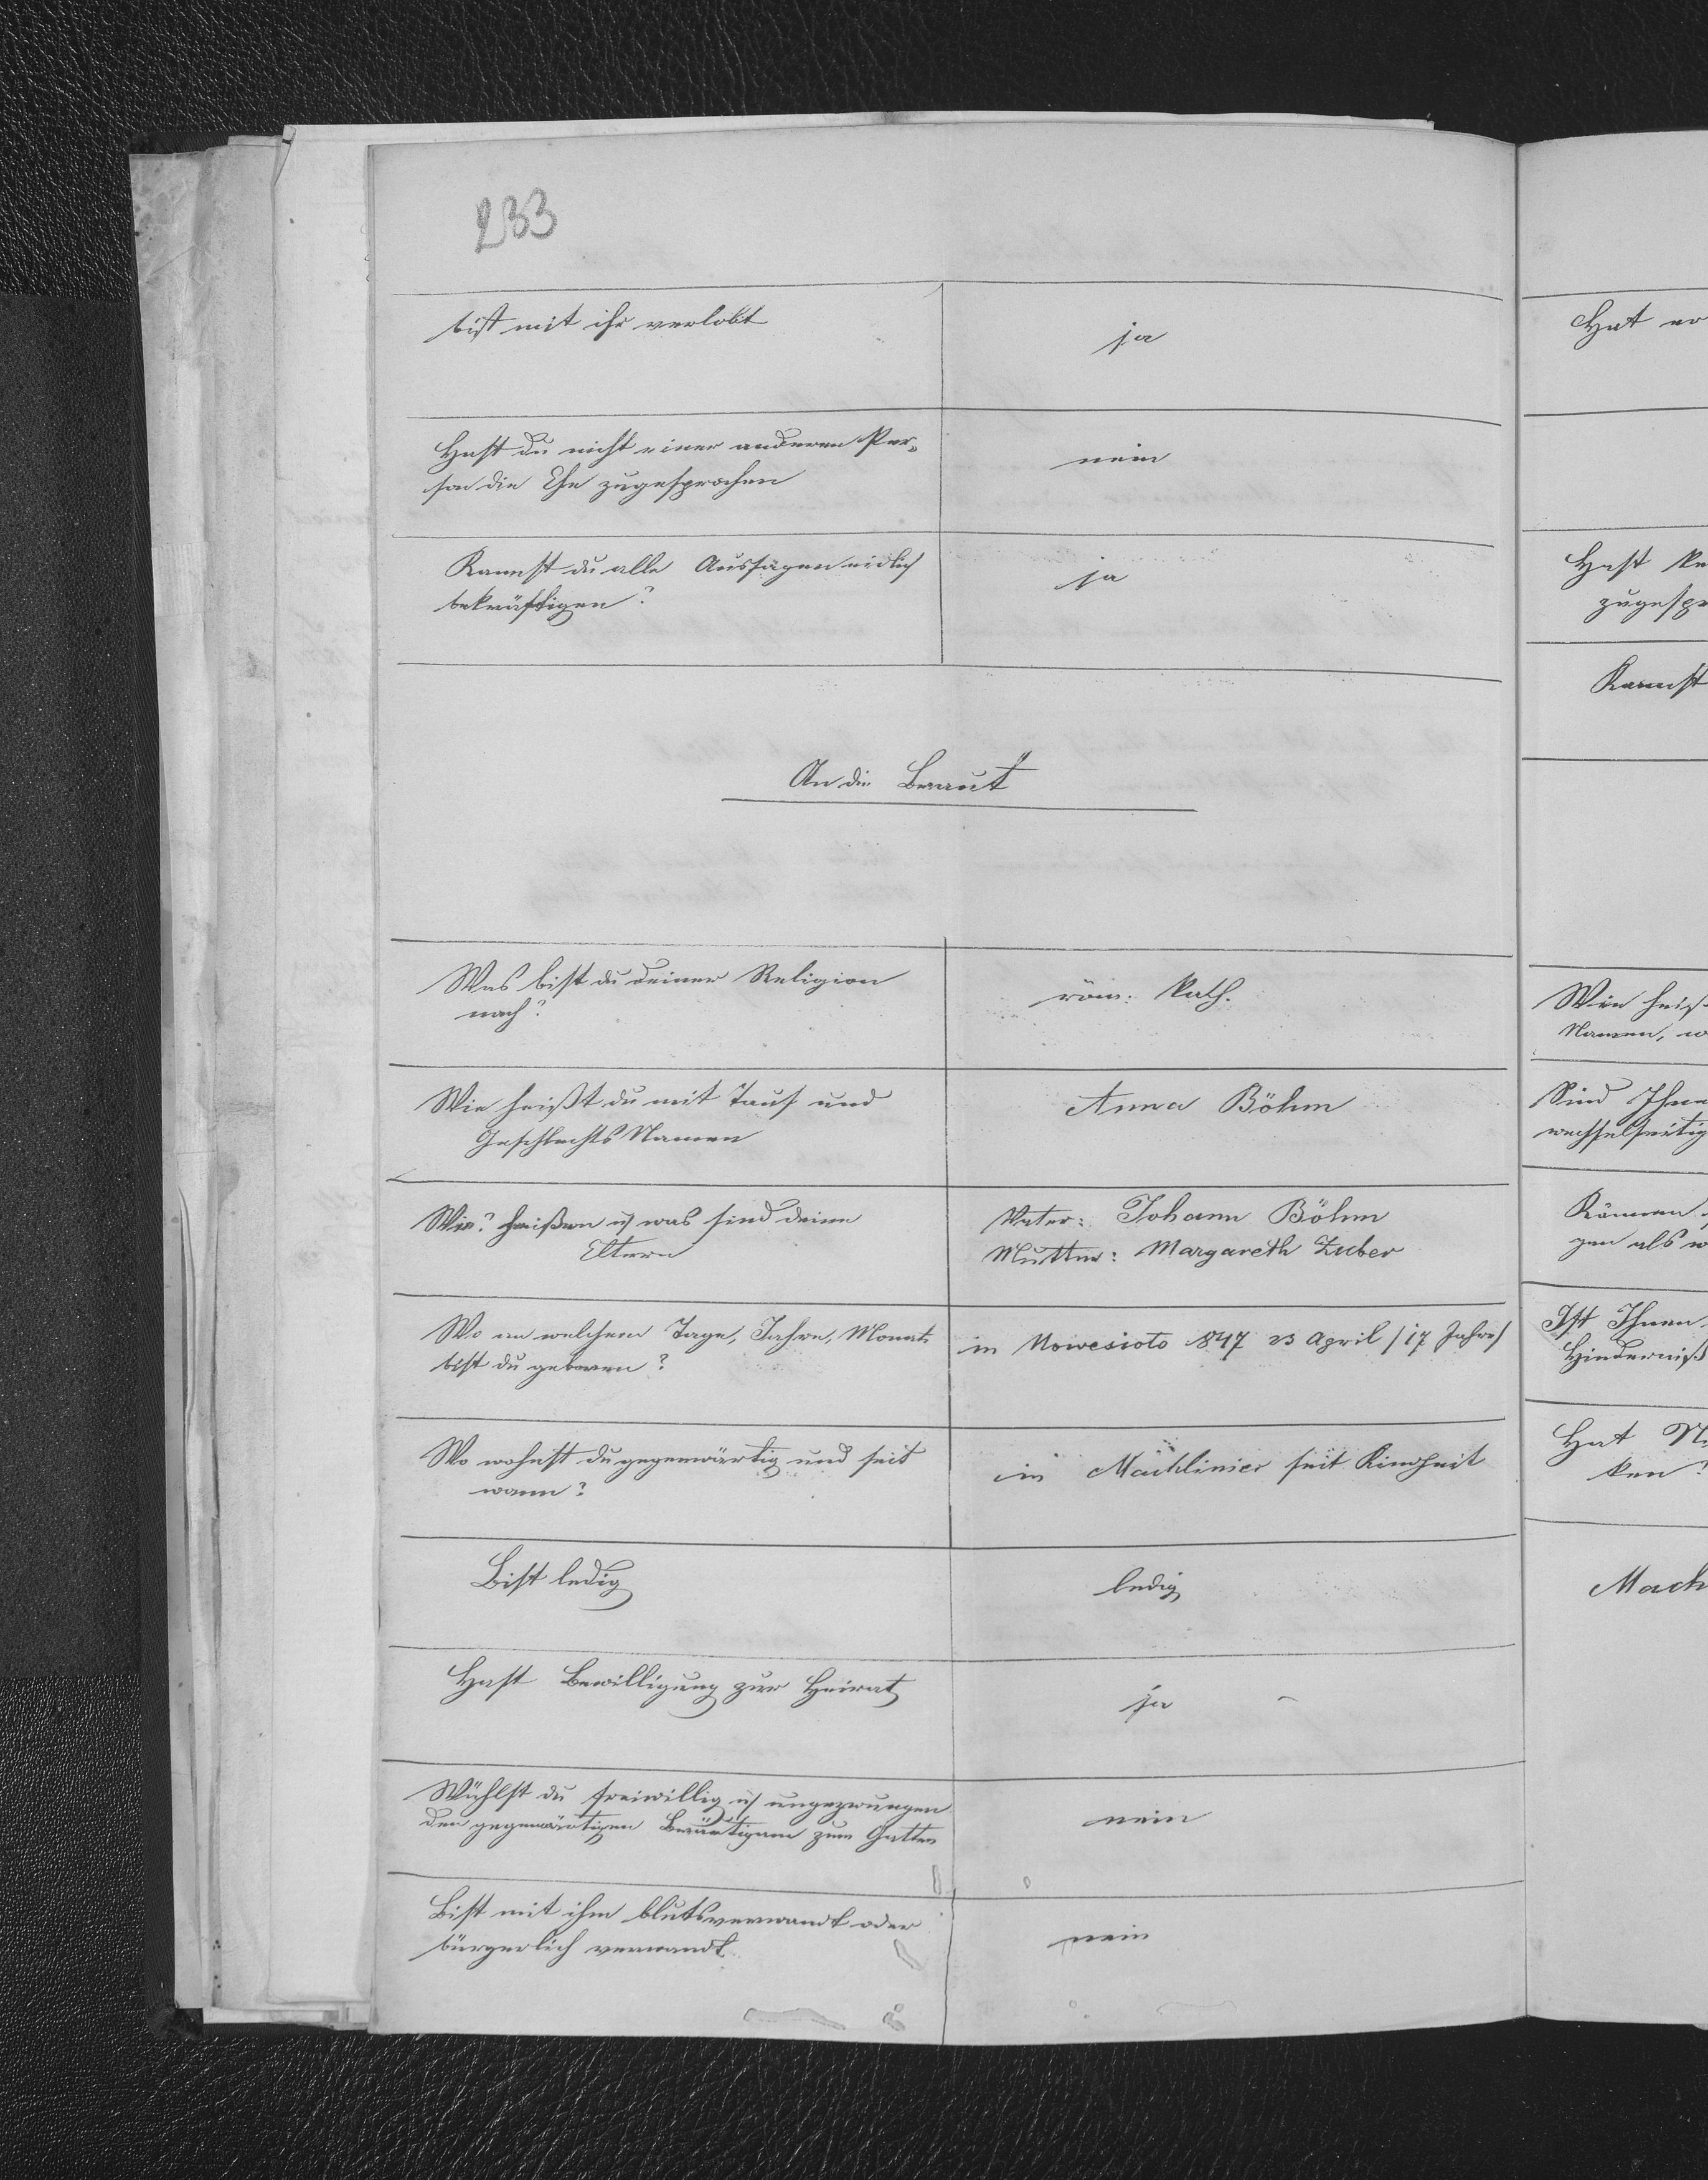 233
bist mit ihr verlobt
ja
Hast du nicht einer anderen Per-
son die Ehe zugesprochen
nein
Kannst du alle Aussagen eidlich
bekräftigen?
ja
An die Braut
Was bist du deiner Religion
nach?
röm: kath.
Wie heißt du mit Tauf und
Geschlechts Namen
Anna Böhm
Wie? heißen u was sind deine
Eltern
Vater: Johann Böhm
Mutter: Margareth Zuber
Wo an welchem Tage, Jahre, Monat
bist du geboren?
in Nowesioto 847 23 April /17 Jahre/
Wo wohnst du gegenwärtig und seit
wann?
in Machlinier seit Kindheit
Bist ledig
ledig
Hast Bewilligung zur Heirat
ja
Wählst du freiwillig u ungezwungen
den gegenwärtigen Bräutigam zum Gatten
nein
Bist mit ihm blutsverwandt oder
bürgerlich verwandt
nein
Hat
Hast
zugespr
Kannst
Wie heiß
Namen,
Sind Ihne
wechselseitig
Können
gen als w
Ist Ihnen
Hinderniß
Hat
ken?
Mach